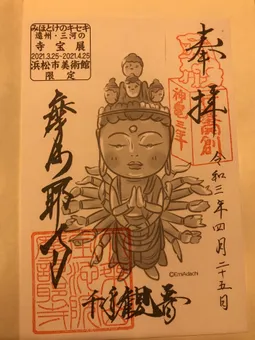 みほとけのキセキ
遠州・三河の
寺宝展
2021.3.25-2021.4.25
浜松市美術館
限定
奉拝
神亀三年
令和三年四月二十五日
摩訶耶寺
千手観音
©EmiAdachi